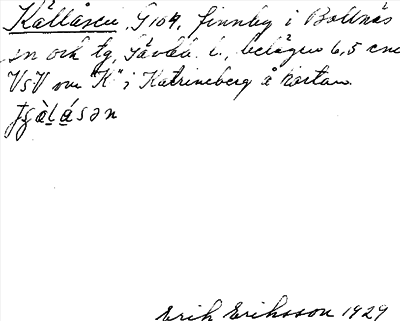 Källåsen G 104, finnby i Bollnäs
sn och tg, Gävleb. l., belägen 6,5 cm
VSV om "K" i Katrineberg å kartan.
Erik Eriksson 1929